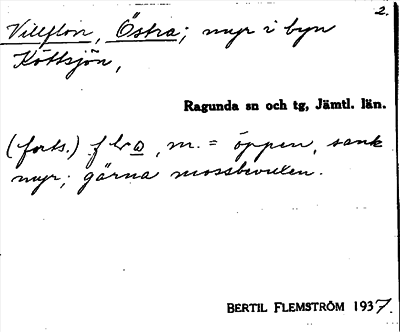 2.
Villflon, Östra; myr i byn
Köttsjön,
Ragunda sn och tg, Jämtl. län.
(forts.) m. = öppen, sank
myr; gärna mossbevuxen.
BERTIL FLEMSTRÖM 1937.